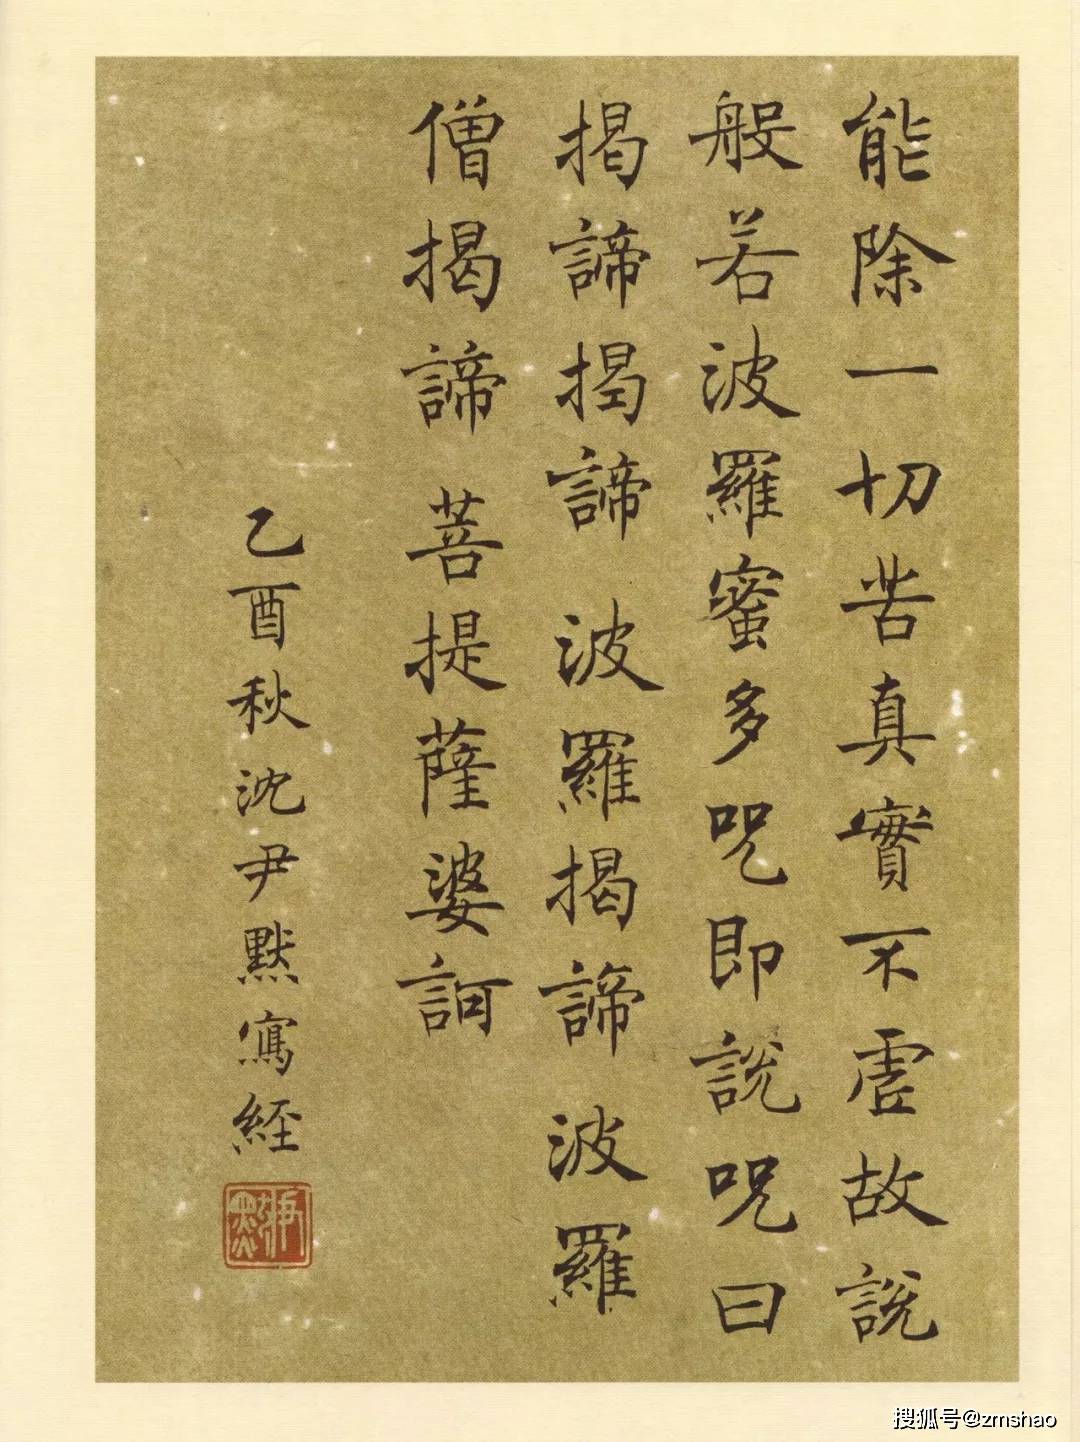 能除一切苦真實不虛故說
般若波羅蜜多呪即說呪曰
揭諦揭諦 波羅揭諦 波羅
僧揭諦 菩提薩婆訶
乙酉秋沈尹默寫經
搜狐号@zmshao